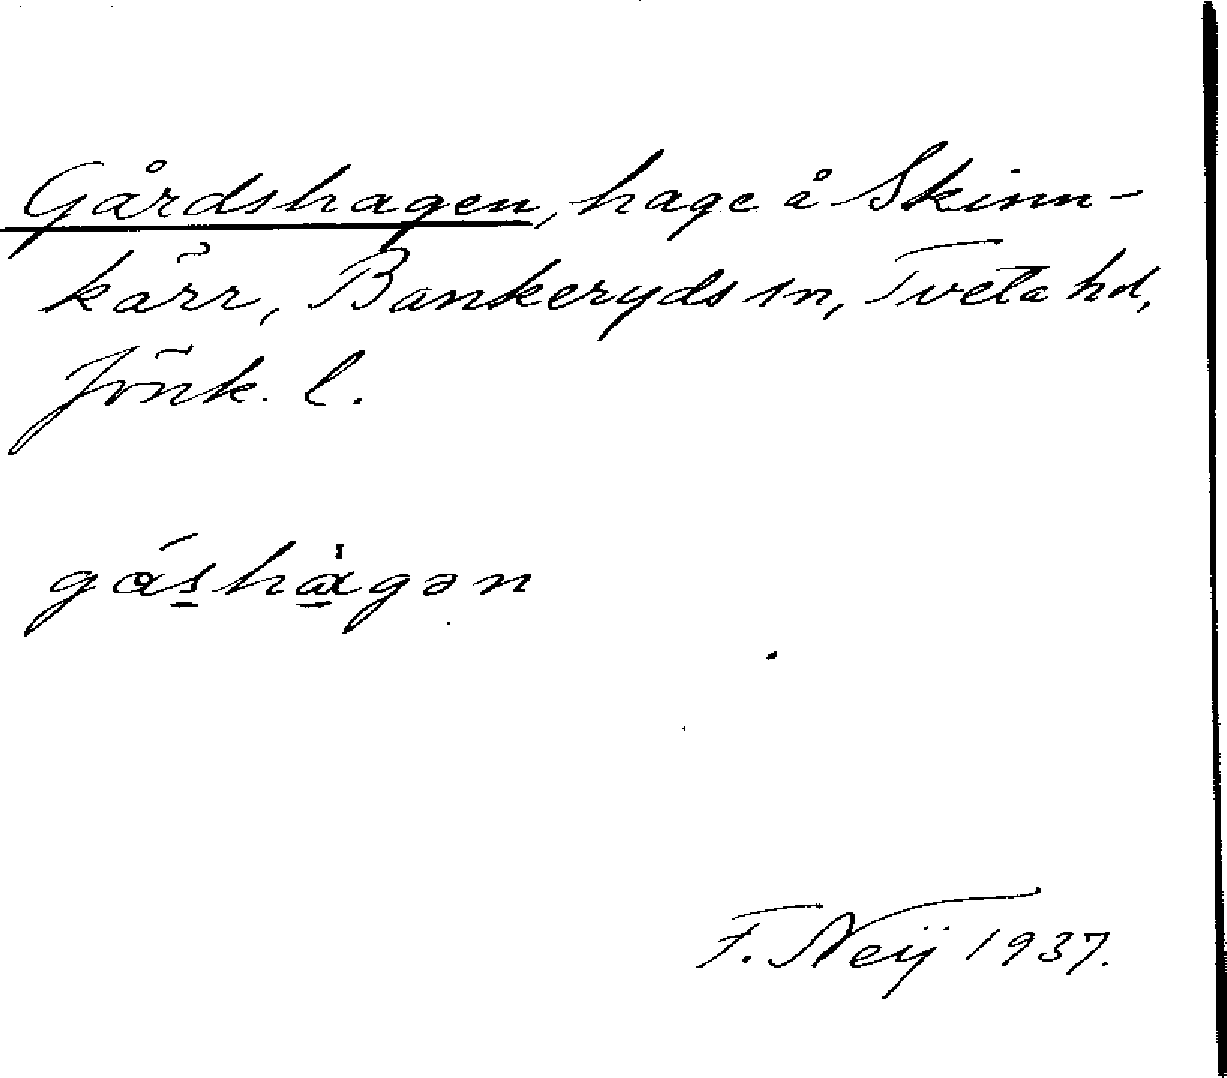 Gårdshagen, hage å Skinn-
kärr, Bankeryds sn, Tveta hd,
Jönk. l.
gáshàgən
F. Neÿ 1937.